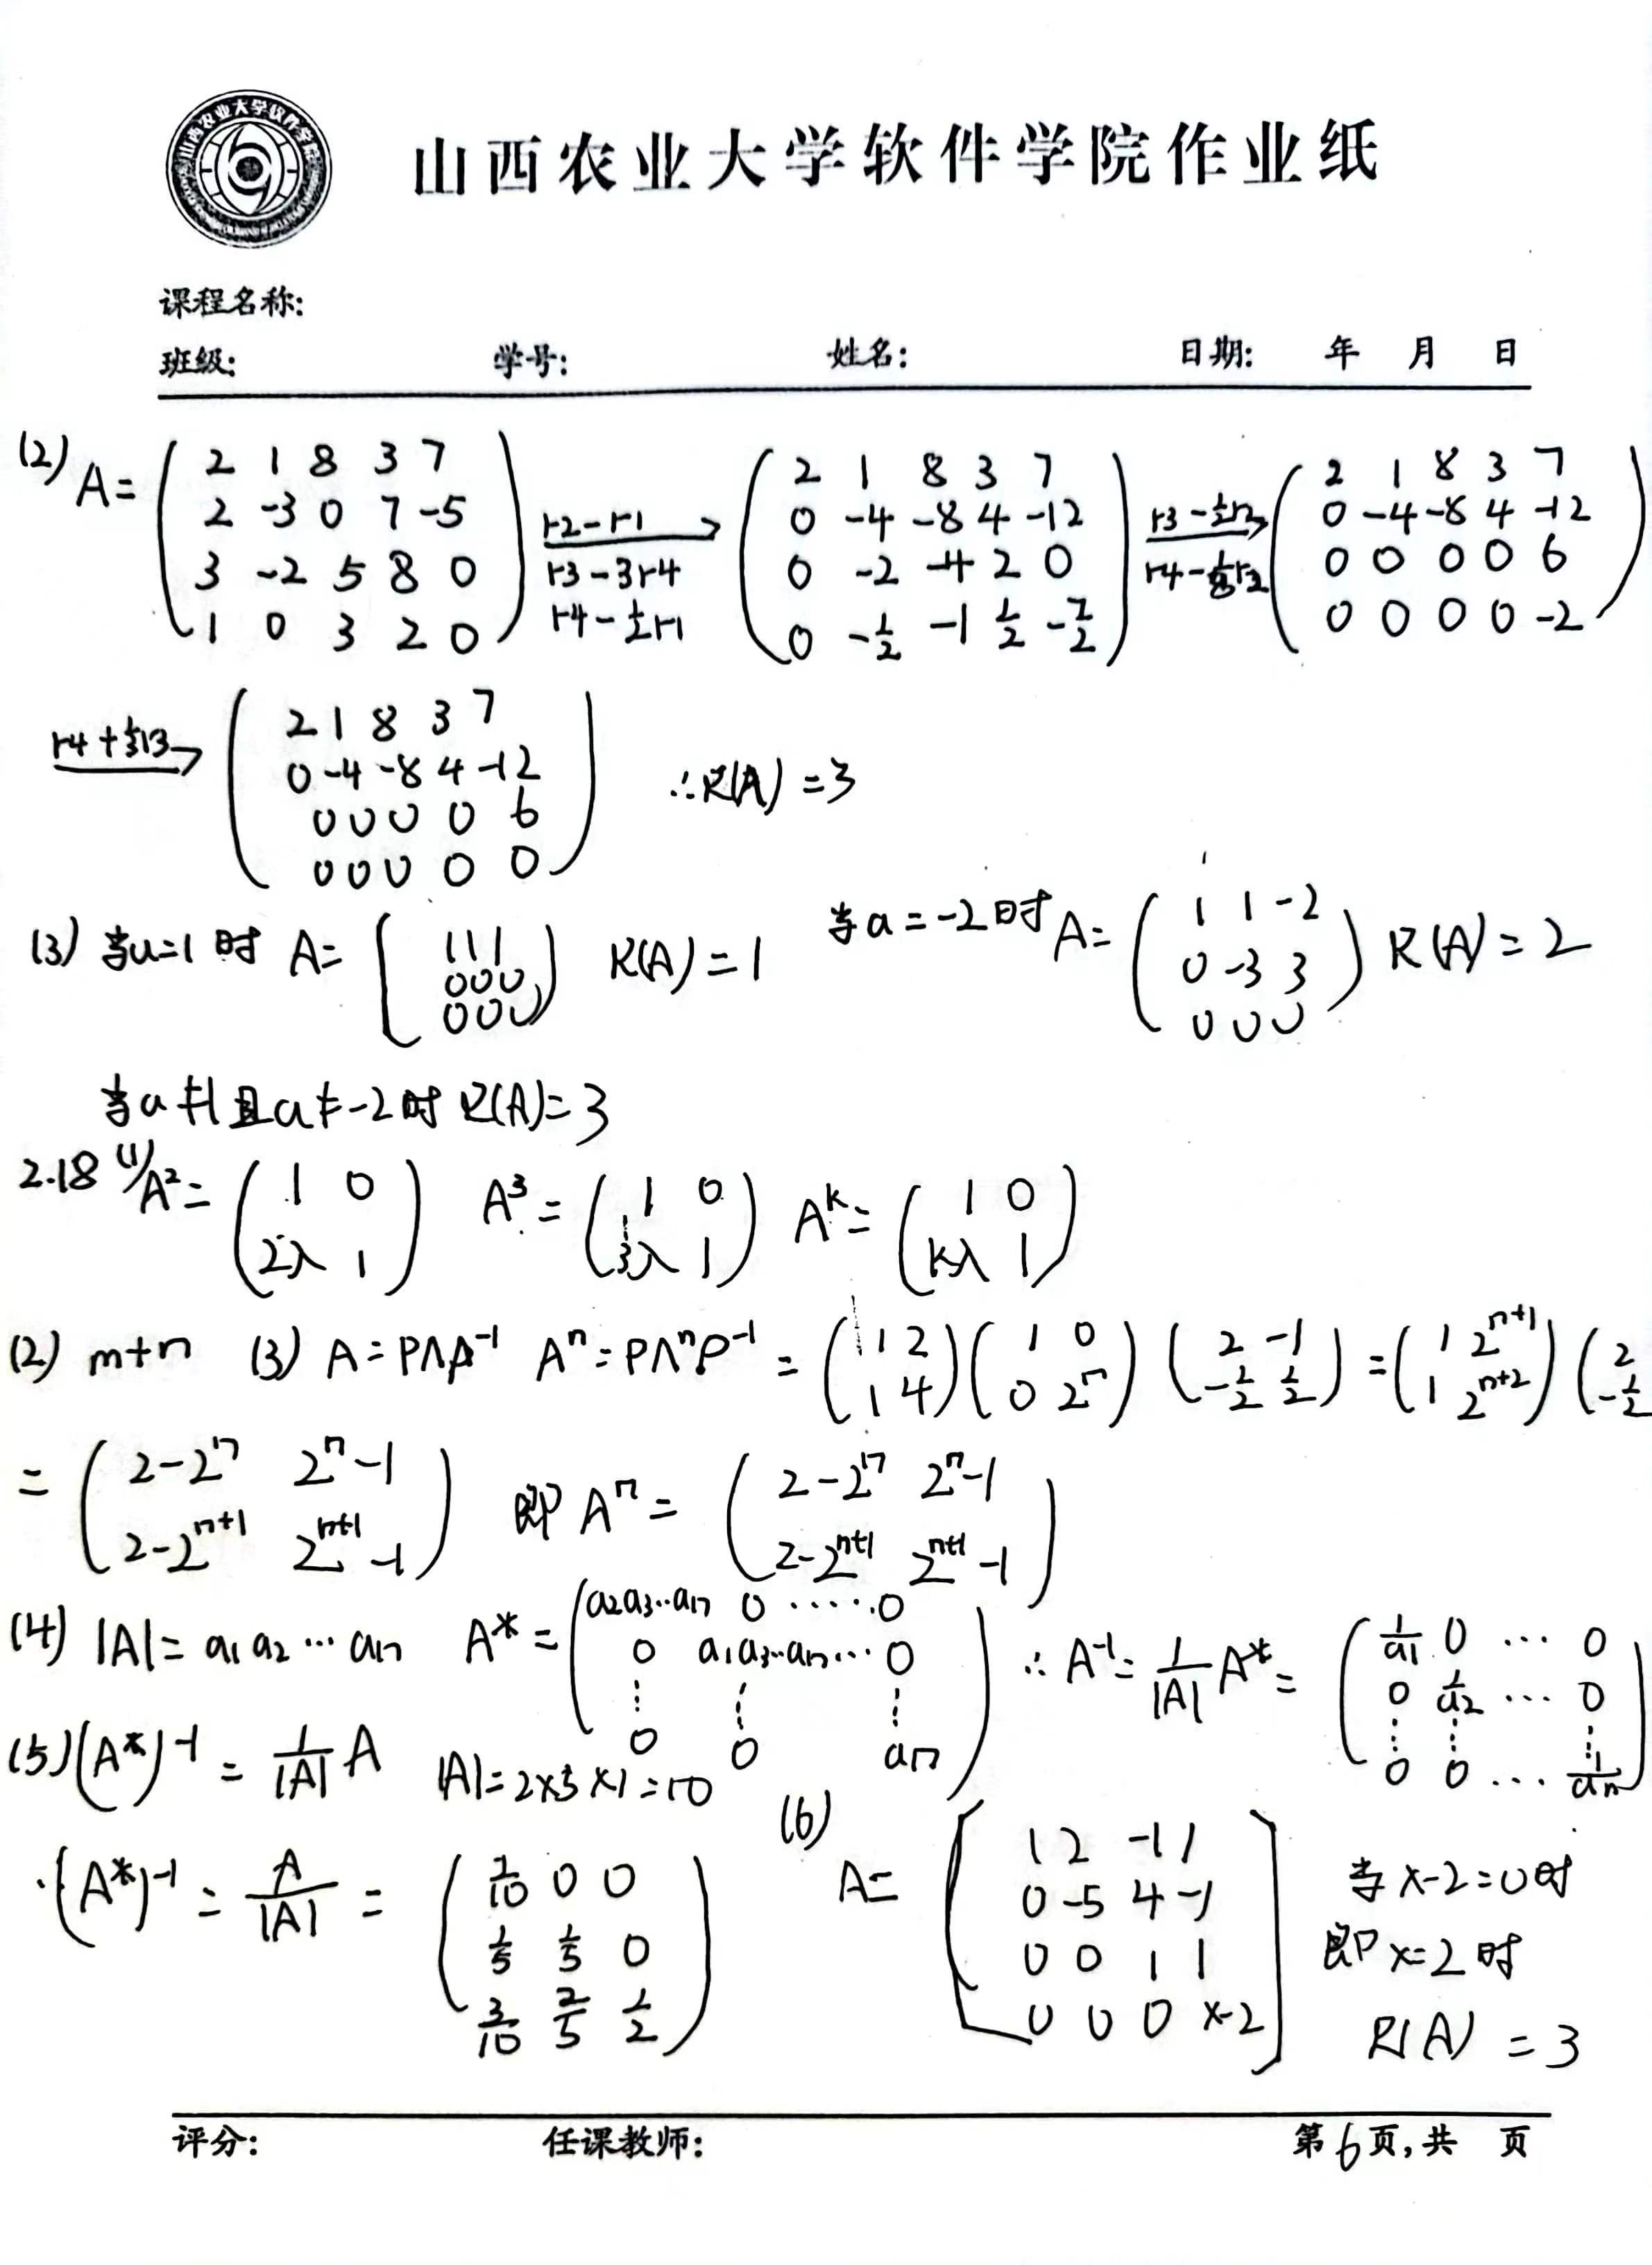 山西农业大学软件学院
山西农业大学软件学院作业纸
课程名称:
班级: 学号: 姓名: 日期: 年 月 日
(2) A= ( 2 1 8 3 7 ; 2 -3 0 7 -5 ; 3 -2 5 8 0 ; 1 0 3 2 0 ) r2-r1 r3-3r4 r4-½r1 → ( 2 1 8 3 7 ; 0 -4 -8 4 -12 ; 0 -2 -4 2 0 ; 0 -½ -1 ½ -7/2 ) r3-½r2 r4-⅛r2 → ( 2 1 8 3 7 ; 0 -4 -8 4 -12 ; 0 0 0 0 6 ; 0 0 0 0 -2 )
r4+⅓r3 → ( 2 1 8 3 7 ; 0 -4 -8 4 -12 ; 0 0 0 0 6 ; 0 0 0 0 0 ) ∴R(A)=3
(3) 当a=1时 A= ( 1 1 1 ; 0 0 0 ; 0 0 0 ) R(A)=1 当a=-2时 A= ( 1 1 -2 ; 0 -3 3 ; 0 0 0 ) R(A)=2
当a≠1且a≠-2时 R(A)=3
2.18 (1) A²= ( 1 0 ; 2λ 1 ) A³= ( 1 0 ; 3λ 1 ) Aᵏ= ( 1 0 ; kλ 1 )
(2) m+n (3) A=PΛP⁻¹ Aⁿ=PΛⁿP⁻¹ = ( 1 2 ; 1 4 ) ( 1 0 ; 0 2ⁿ ) ( 2 -1 ; -½ ½ ) = ( 1 2ⁿ⁺¹ ; 1 2ⁿ⁺² ) ( 2 ; -½
= ( 2-2ⁿ 2ⁿ-1 ; 2-2ⁿ⁺¹ 2ⁿ⁺¹-1 ) 即 Aⁿ= ( 2-2ⁿ 2ⁿ-1 ; 2-2ⁿ⁺¹ 2ⁿ⁺¹-1 )
(4) |A|= a₁a₂…aₙ A*= ( a₂a₃…aₙ 0 ……0 ; 0 a₁a₃…aₙ… 0 ; ⋮ ⋮ ⋮ ; 0 0 aₙ ) ∴A⁻¹= 1/|A| A* = ( 1/a₁ 0 … 0 ; 0 1/a₂ … 0 ; ⋮ ⋮ ⋮ ; 0 0 … 1/aₙ )
(5) (A*)⁻¹ = 1/|A| A |A|=2×5×1=10
∙(A*)⁻¹ = A/|A| = ( 1/10 0 0 ; 1/5 1/5 0 ; 3/10 2/5 1/2 )
(6) A= ( 1 2 -1 1 ; 0 -5 4 -1 ; 0 0 1 1 ; 0 0 0 x-2 ) 当x-2=0时
即x=2时
R(A)=3
评分: 任课教师: 第6页,共 页